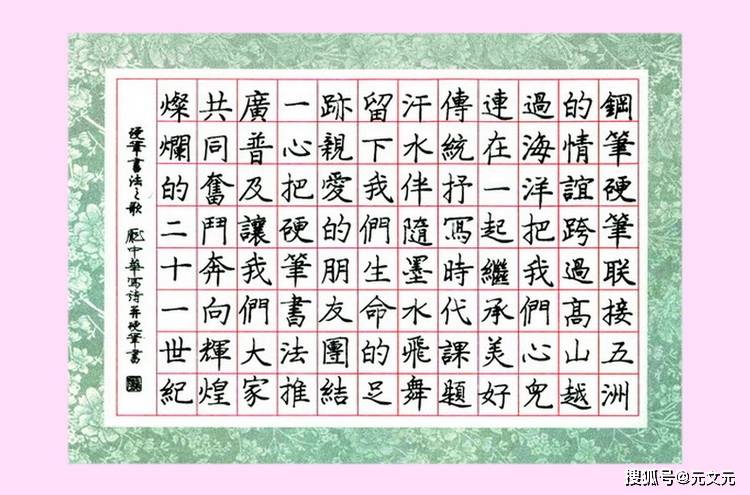 鋼筆硬筆联接五洲
的情誼跨過高山越
過海洋把我們心兒
連在一起繼承美好
傳統抒寫時代課題
汗水伴隨墨水飛舞
留下我們生命的足
跡親愛的朋友團結
一心把硬筆書法推
廣普及讓我們大家
共同奮鬥奔向輝煌
燦爛的二十一世紀
硬筆書法之歌 龐中華寫詩并硬筆書
搜狐号@元文元